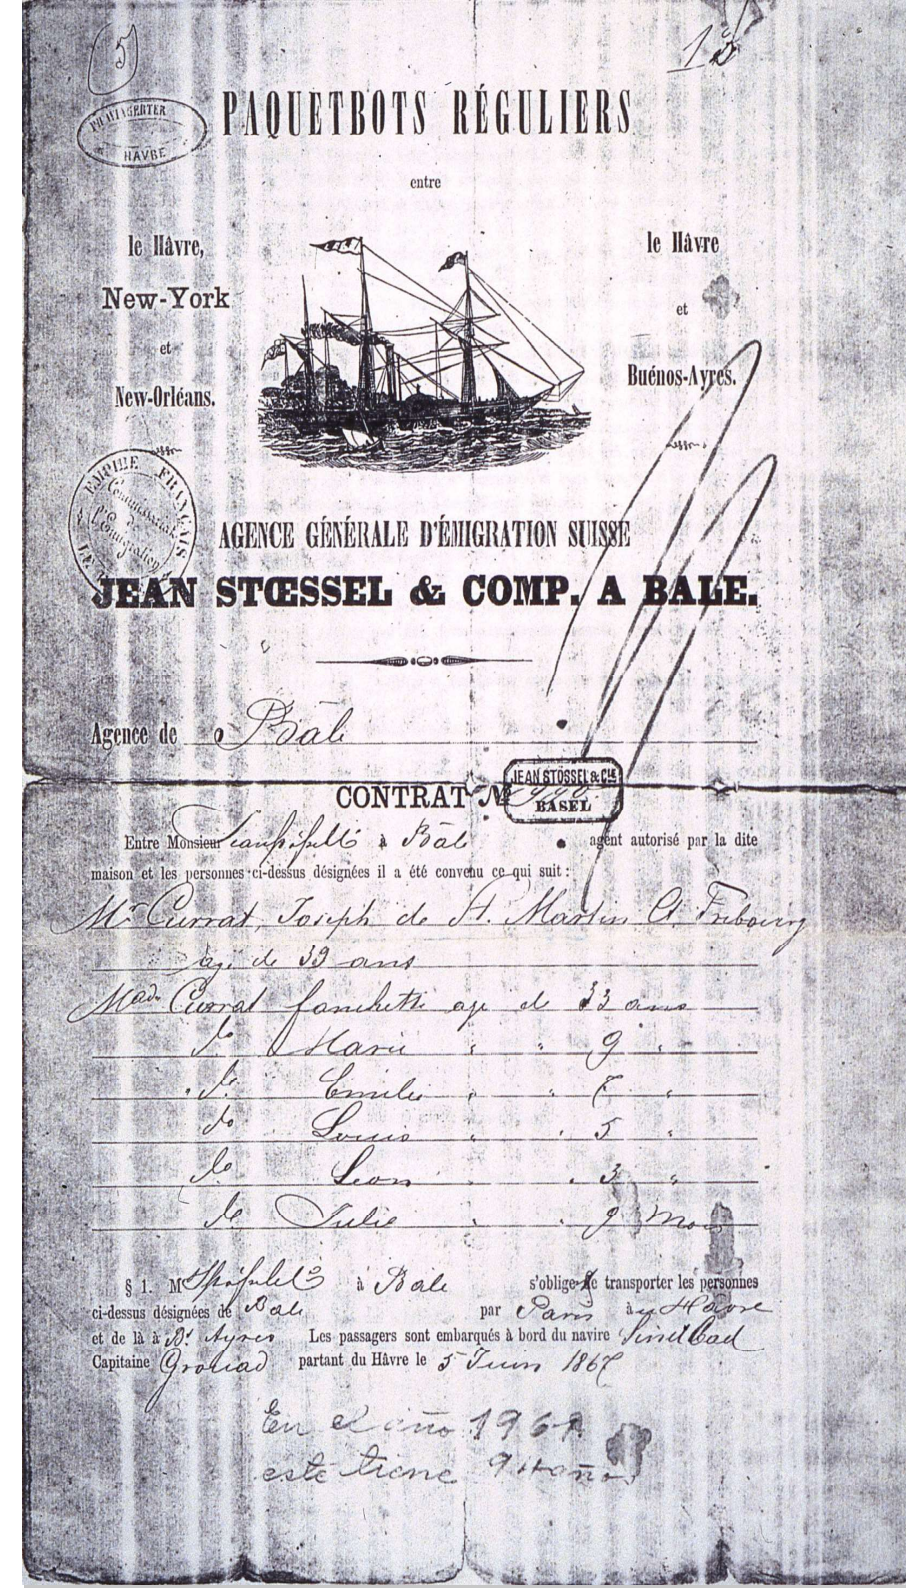 5
15
HAVRE
PAQUETBOTS RÉGULIERS
entre
le Hâvre,
New-York
et
New-Orléans.
le Hâvre
et
Buénos-Ayres.
EMPIRE FRANÇAIS
Commissariat
de
l'Emigration
AGENCE GÉNÉRALE D'ÉMIGRATION SUISSE
JEAN STŒSSEL & COMP. A BALE.
Agence de Bâle
JEAN STÖSSEL & CIE
BASEL
CONTRAT No
Entre Monsieur à Bâle agent autorisé par la dite
maison et les personnes ci-dessus désignées il a été convenu ce qui suit :
Mr Currat, Joseph de St. Martin Ct. Fribourg
age de 39 ans
Made Currat fanchette age de 33 ans
do Marie " " 9 "
do Emilie " " 7 "
do Louis " " 5 "
do Leon " " 3 "
do Julie " " 9 mois
§ 1. M à Bâle s'oblige de transporter les personnes
ci-dessus désignées de Bâle par Paris à au Hâvre
et de là à Bs Ayres Les passagers sont embarqués à bord du navire Sindbad
Capitaine partant du Hâvre le 5 Juin 1867
En el año
este tiene años